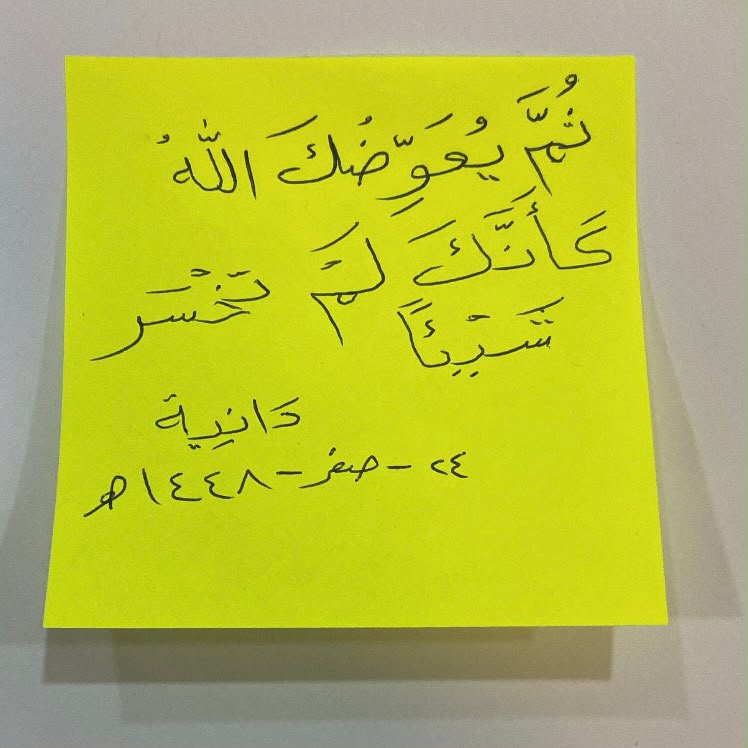 ثُمَّ يُعَوِّضُكَ اللّٰهُ
كَأَنَّكَ لَمْ تَخْسَر
شَيْئاً
دَانِية
٢٤ - صفر - ١٤٤٨ه